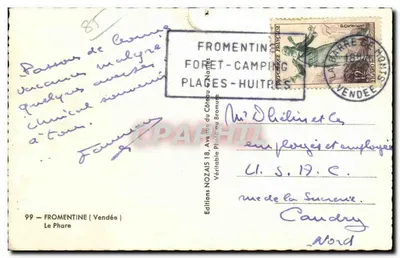 85
FROMENTINE
FORET-CAMPING
PLAGES-HUITRES
LA BARRE DE MONTS
VENDEE
Passons de bonnes
vacances malgré
quelques averses
amical souvenir
à tous.
Mr Dhélin et les
employés et employées
U. S. A. C.
rue de la Sucrerie
Caudry
Nord
Editions NOZAIS 18, du Côteau
Véritable Photo au Bromure
99 — FROMENTINE (Vendée)
Le Phare